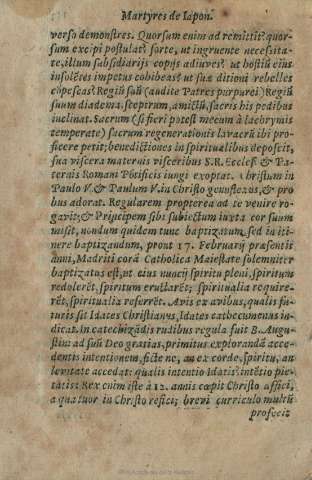 Martyres de Iapon.
verso demonstres. Quorsum enim ad remittit? quor-
sum excipi postulat? forte, ut ingruente necessita-
te, illum subsidiarijs copijs adiuves? ut hostiũ eius
insolẽtes impetus cohibeas? ut suæ ditioni rebelles
cõpescas? Regiũ suũ (audite Patres purpurei) Regiũ
suum diadema, sceptrum, amictũ, sacris his pedibus
inclinat. Sacrum (si fieri potest mecum à lacbrymis
temperate) sacrum regenerationis lavacrũ ibi pro-
ficere petit; benedictiones in spiritualibus deposcit,
sua viscera maternis visceribus S. R. Ecclesiæ & Pa-
ternis Romani Põtificis iungi exoptat. Christum in
Paulo V. & Paulum V. in Christo genuflexus, & pro
bus adorat. Regularem propterea ad te venire ro-
gavit; & Principem sibi subiectum iuxta cor suum
misit, nondum quidem tunc baptizatum, sed in iti-
nere baptizandum, prout 17. Februarij præsentis
anni, Madriti corã Catholica Maiestate solemniter
baptizatus est, ut eius nuncij spiritu pleni, spiritum
redolerẽt, spiritum eructarẽt; spiritualia require-
rẽt, spiritualia referrẽt. Avis ex avibus, qualis fu-
turis sit Idates Christianus, Idates cathecumenus in-
dicat. In catechizãdis rudibus regula fuit B. Augu-
stini ad suũ Deo gratias, primitus explorandã acce-
dentis intentionem, fictè nc, an ex corde, spiritu, an
levitate accedat: qualis intentio Idatis? intẽtio pie-
tatis: Rex enim iste à 12. annis cœpit Christo affici,
a quatuor in Christo refici; brevi curriculo multũ
profeciz